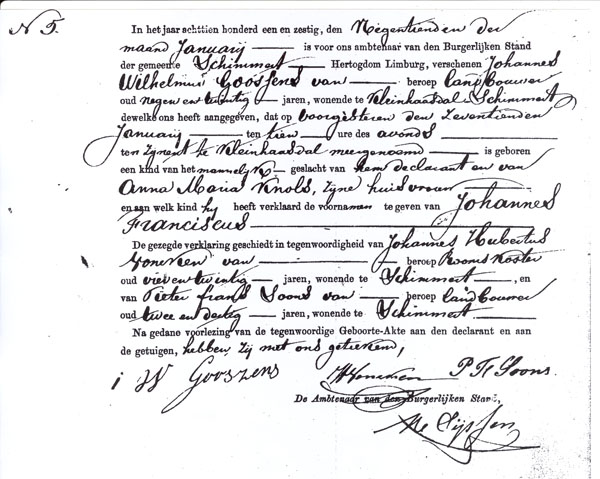 N 5.
In het jaar achttien honderd een en zestig, den Negentienden der
maand Januarij is voor ons ambtenaar van den Burgerlijken Stand
der gemeente Schimmert Hertogdom Limburg, verschenen Johannes
Wilhelmus Goossens van beroep landbouwer
oud negen en twintig jaren, wonende te Kleinhaasdal Schimmert
dewelke ons heeft aangegeven, dat op voorgisteren den Zeventienden
Januarij ten tien ure des avonds
ten zynent te Kleinhaasdal meergenoemd is geboren
een kind van het mannelyk geslacht van hem declarant en van
Anna Maria Knols, zyne huisvrouw
en aan welk kind hy heeft verklaard de voornamen te geven van Johannes
Franciscus
De gezegde verklaring geschiedt in tegenwoordigheid van Johannes Hubertus
van beroep Kooms Koster
oud vier en twintig jaren, wonende te Schimmert, en
van Pieter Frans Soons van beroep landbouwer
oud twee en dertig jaren, wonende te Schimmert
Na gedane voorlezing van de tegenwoordige Geboorte-Akte aan den declarant en aan
de getuigen, hebben zij met ons getekend,
i W Goossens P F Soons.
De Ambtenaar van den Burgerlijken Stand,